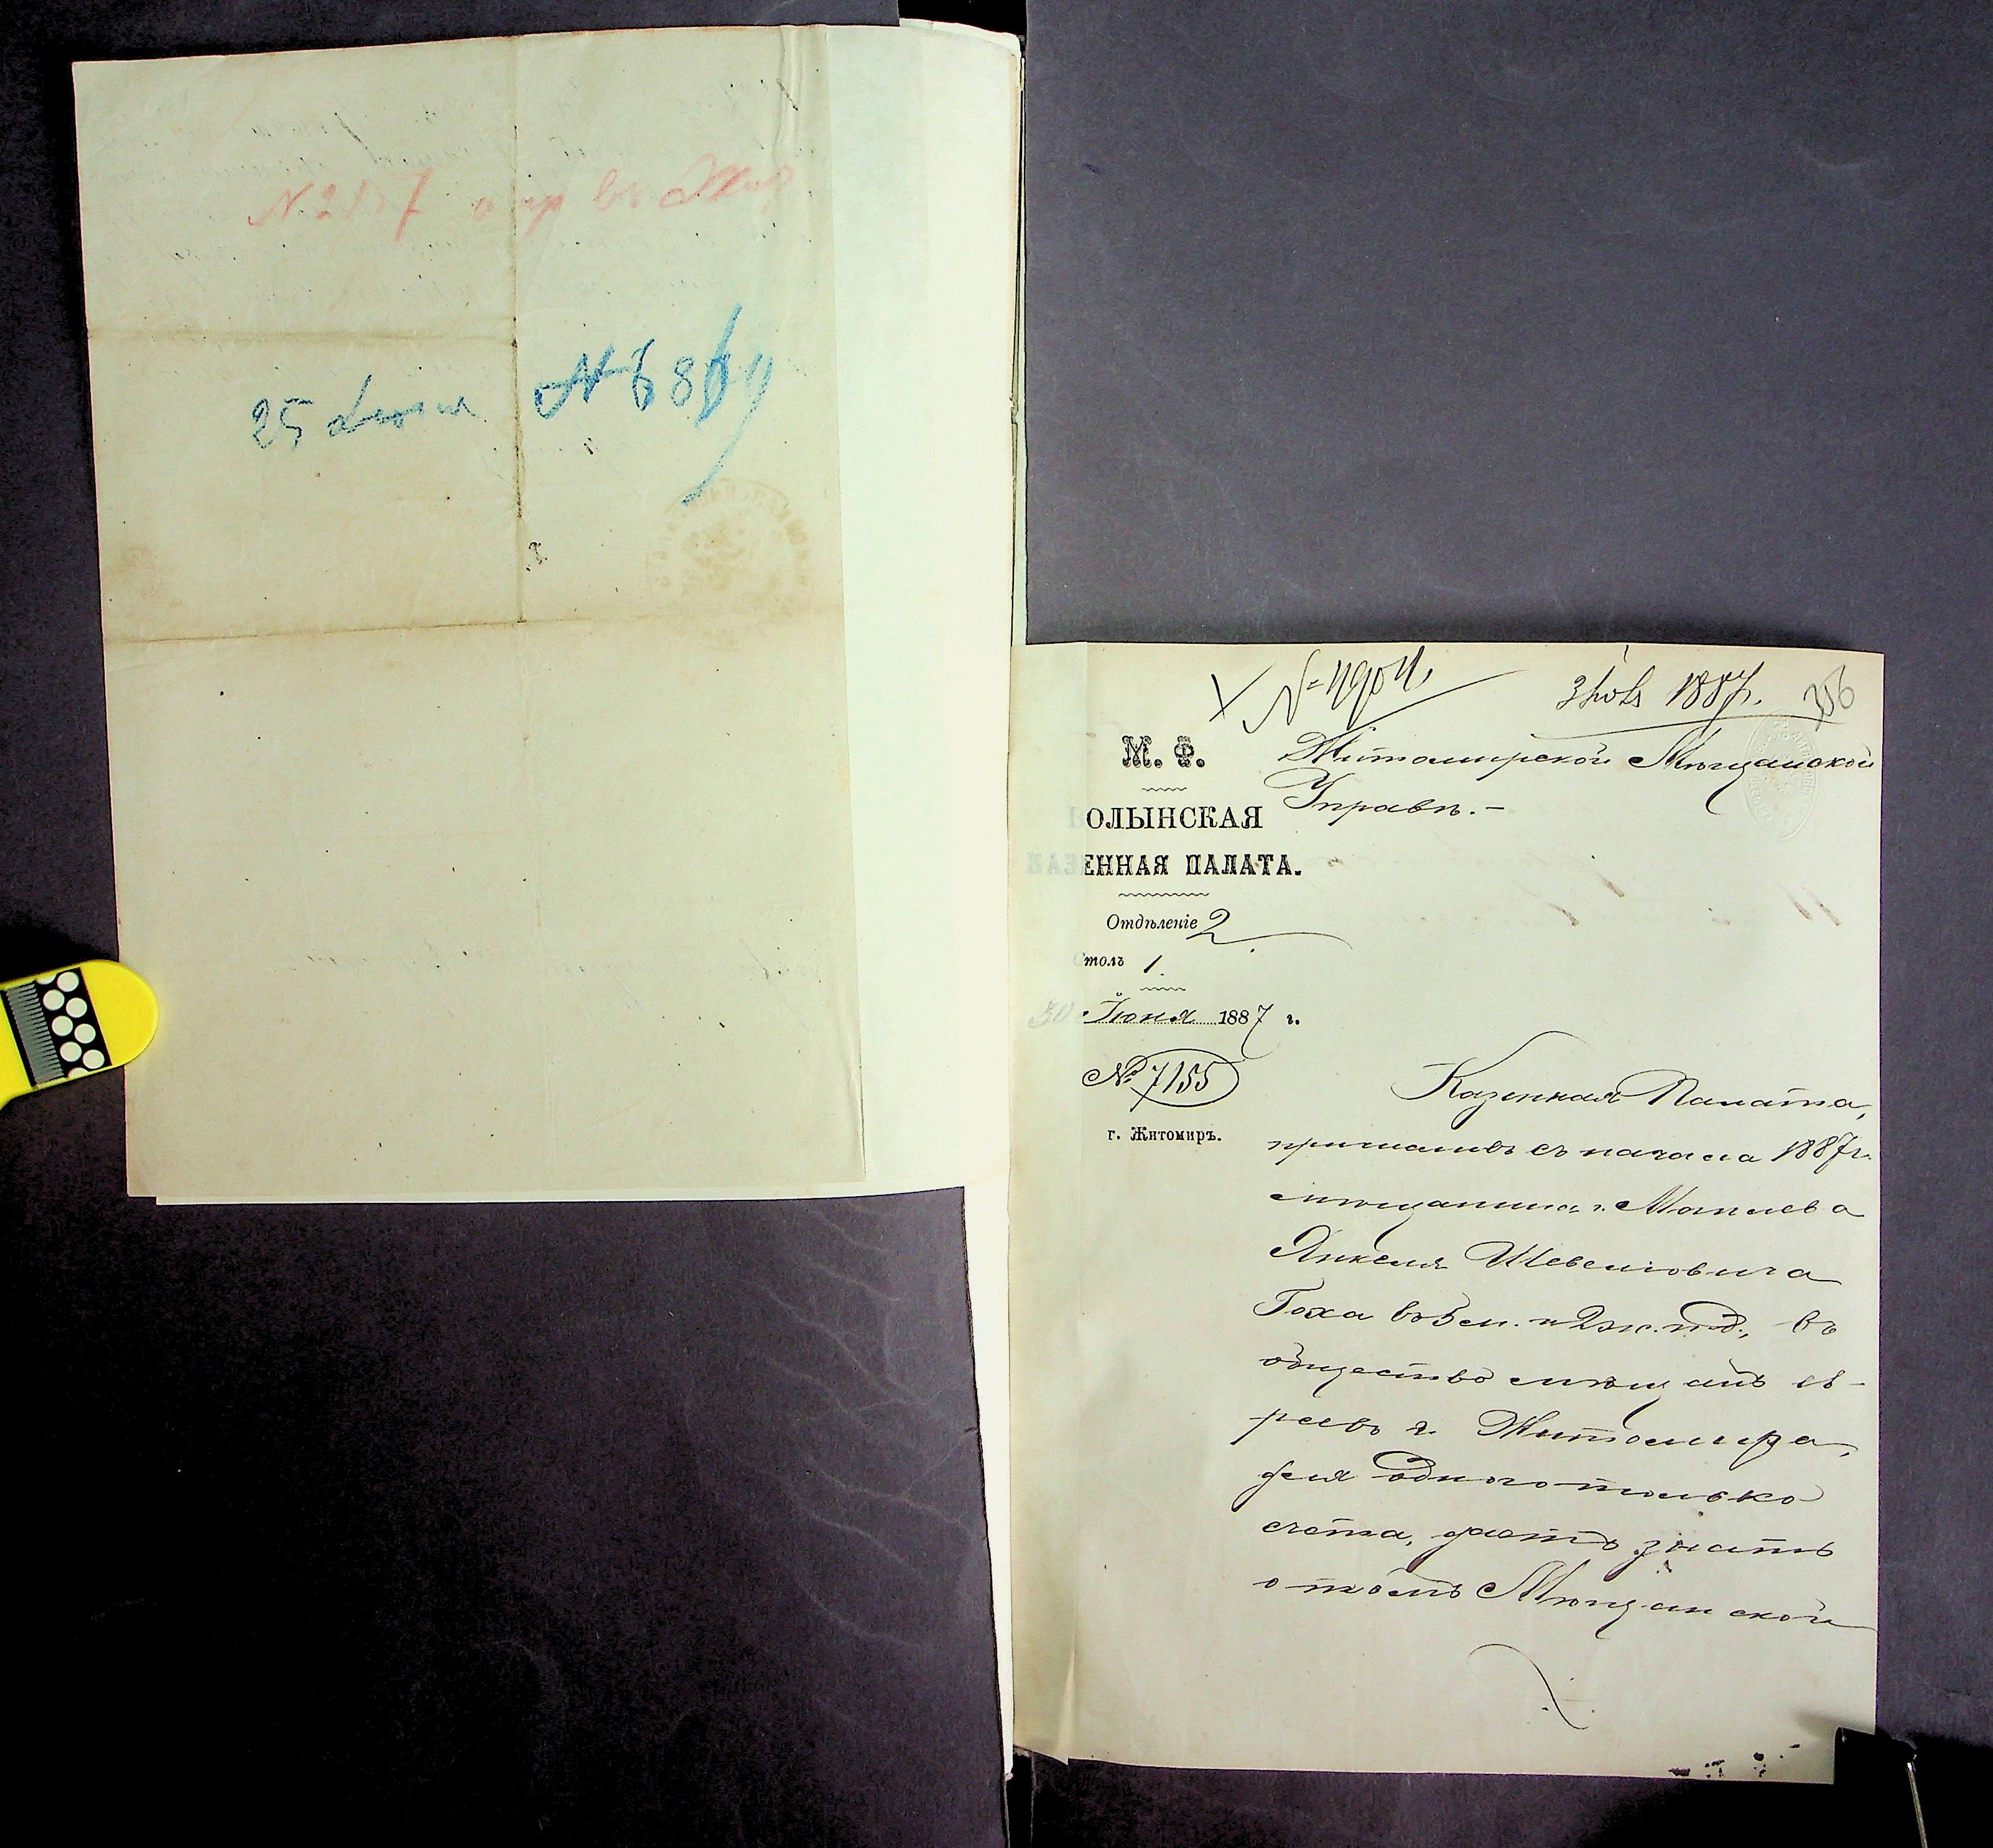 25 Июня № 6869
№ 4904. 3 Июля 1887. 356
М. Ф.
ВОЛЫНСКАЯ
КАЗЕННАЯ ПАЛАТА.
Отдѣленіе 2
Столъ 1.
30 Іюня 1887 г.
№ 7155
г. Житомиръ.
Житомирской Мѣщанской
Управѣ.-
Казенная Палата,
причисливъ съ начала 1887 г.
мѣщанина г. Могилева
Янкеля Шевелиовича
Гоха въ 5 м. и 2 ж. п. д., въ
общество мѣщанъ ев-
реевъ г. Житомира,
для одного только
счета, даетъ знать
о томъ Мѣщанской